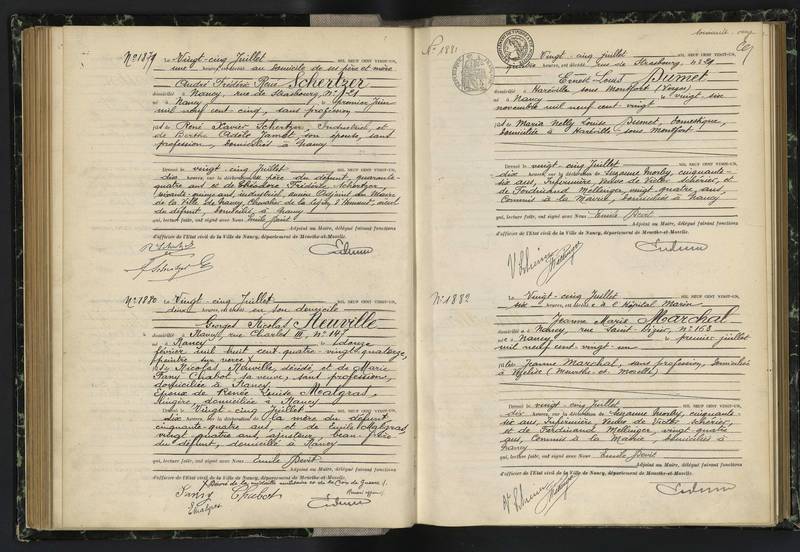 N° 1879 Le Vingt-cinq Juillet MIL NEUF CENT VINGT-UN,
une heures, au domicile de ses père et mère
André Frédéric René Schertzer
domicilié à Nancy, rue de Strasbourg, N° 21
né à Nancy, premier Juin
mil neuf cent cinq, sans profession
fils de René Xavier Schertzer, Industriel, et
de Berthe Jamot son épouse, sans
profession, domiciliés à Nancy
Dressé le vingt-cinq Juillet MIL NEUF CENT VINGT-UN,
dix heures, sur la déclaration du père du défunt, quarante
quatre ans et de Théodore Frédéric Schertzer,
industriel, Adjoint au Maire
de la Ville de Nancy, Chevalier de la Légion d'Honneur,
du défunt, domiciliés à Nancy
qui, lecture faite, ont signé avec Nous Emile Devit
Adjoint au Maire, délégué faisant fonctions
d'officier de l'Etat civil de la Ville de Nancy, département de Meurthe-et-Moselle.
N° 1880 Le Vingt-cinq Juillet MIL NEUF CENT VINGT-UN,
heures, est décédé en son domicile
Georges Nicolas Neuville
domicilié à Nancy, rue Charles III, N° 147
né à Nancy le douze
février mil huit cent quatre-vingt-quatorze,
peintre sur verre
fils de Nicolas Neuville, décédé, et de Marie
Fany Chabot, sa veuve, sans profession,
domiciliée à Nancy
Epoux de Renée Louise Malgras,
lingère, domiciliée à Nancy
Dressé le Vingt-cinq Juillet MIL NEUF CENT VINGT-UN,
dix heures, sur la déclaration de la mère du défunt
cinquante-quatre ans, et de Emile Malgras
vingt-quatre ans, ajusteur, beau-frère
du défunt, domiciliés à Nancy
qui, lecture faite, ont signé avec Nous Emile Devit
Adjoint au Maire, délégué faisant fonctions
d'officier de l'Etat civil de la Ville de Nancy, département de Meurthe-et-Moselle.
Décoré de la médaille militaire et de la Croix de Guerre
Fany Chabot
N° 1881
Vingt-cinq juillet MIL NEUF CENT VINGT-UN,
quatre heures, est décédé rue de Strasbourg
Ernest Louis Dumet
domicilié à Haréville sous Montfort (Vosges)
né à Nancy le vingt-six
novembre mil neuf cent vingt
fils de Maria Nelly Louise Dumet, domestique,
domiciliée à Haréville sous Montfort
Dressé le vingt-cinq Juillet MIL NEUF CENT VINGT-UN,
dix heures, sur la déclaration de Suzanne Morby, cinquante-
six ans, Infirmière, Veuve de Victor Scherier, et
de Ferdinand Mellinger, vingt-quatre ans,
Commis à la Mairie, domiciliés à Nancy
qui, lecture faite, ont signé avec Nous Emile Devit
Adjoint au Maire, délégué faisant fonctions
d'officier de l'Etat civil de la Ville de Nancy, département de Meurthe-et-Moselle.
N° 1882
Le Vingt-cinq Juillet MIL NEUF CENT VINGT-UN,
six heures, est décédée à l'Hôpital Marin
Jeanne Marie Marchal
domiciliée à Nancy, rue Saint-Dizier, N° 163
née à Nancy le premier juillet
mil neuf cent vingt-un
fille de Jeanne Marchal, sans profession, domiciliée
à Vézelise (Meurthe-et-Moselle)
Dressé le vingt-cinq Juillet MIL NEUF CENT VINGT-UN,
dix heures, sur la déclaration de Suzanne Morby, cinquante-
six ans, Infirmière, Veuve de Victor Scherier,
et de Ferdinand Mellinger, vingt-quatre
ans, Commis à la Mairie, domiciliés à
Nancy
qui, lecture faite, ont signé avec Nous Emile Devit
Adjoint au Maire, délégué faisant fonctions
d'officier de l'Etat civil de la Ville de Nancy, département de Meurthe-et-Moselle.